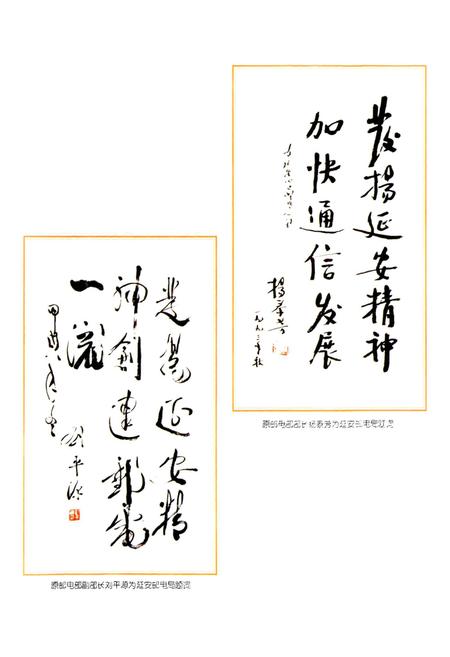 發揚延安精神
加快通信发展
杨泰芳
一九九三年秋
原邮电部部长杨泰芳为延安邮电局题词
發揚延安精
神創建郵電
一流
刘平源
原邮电部副部长刘平源为延安邮电局题词